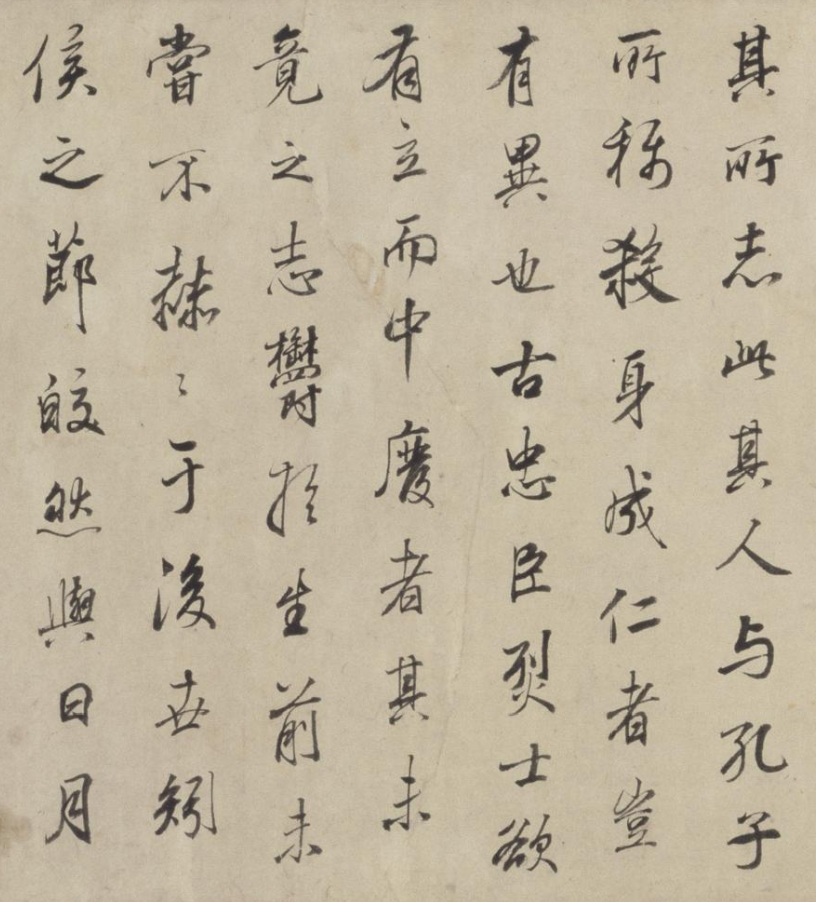 其所志此其人与孔子
所称殺身成仁者豈
有異也古忠臣烈士欲
有立而中廢者其未
竟之志鬱於生前未
嘗不赫〻于後世矧
侯之節皎然與日月